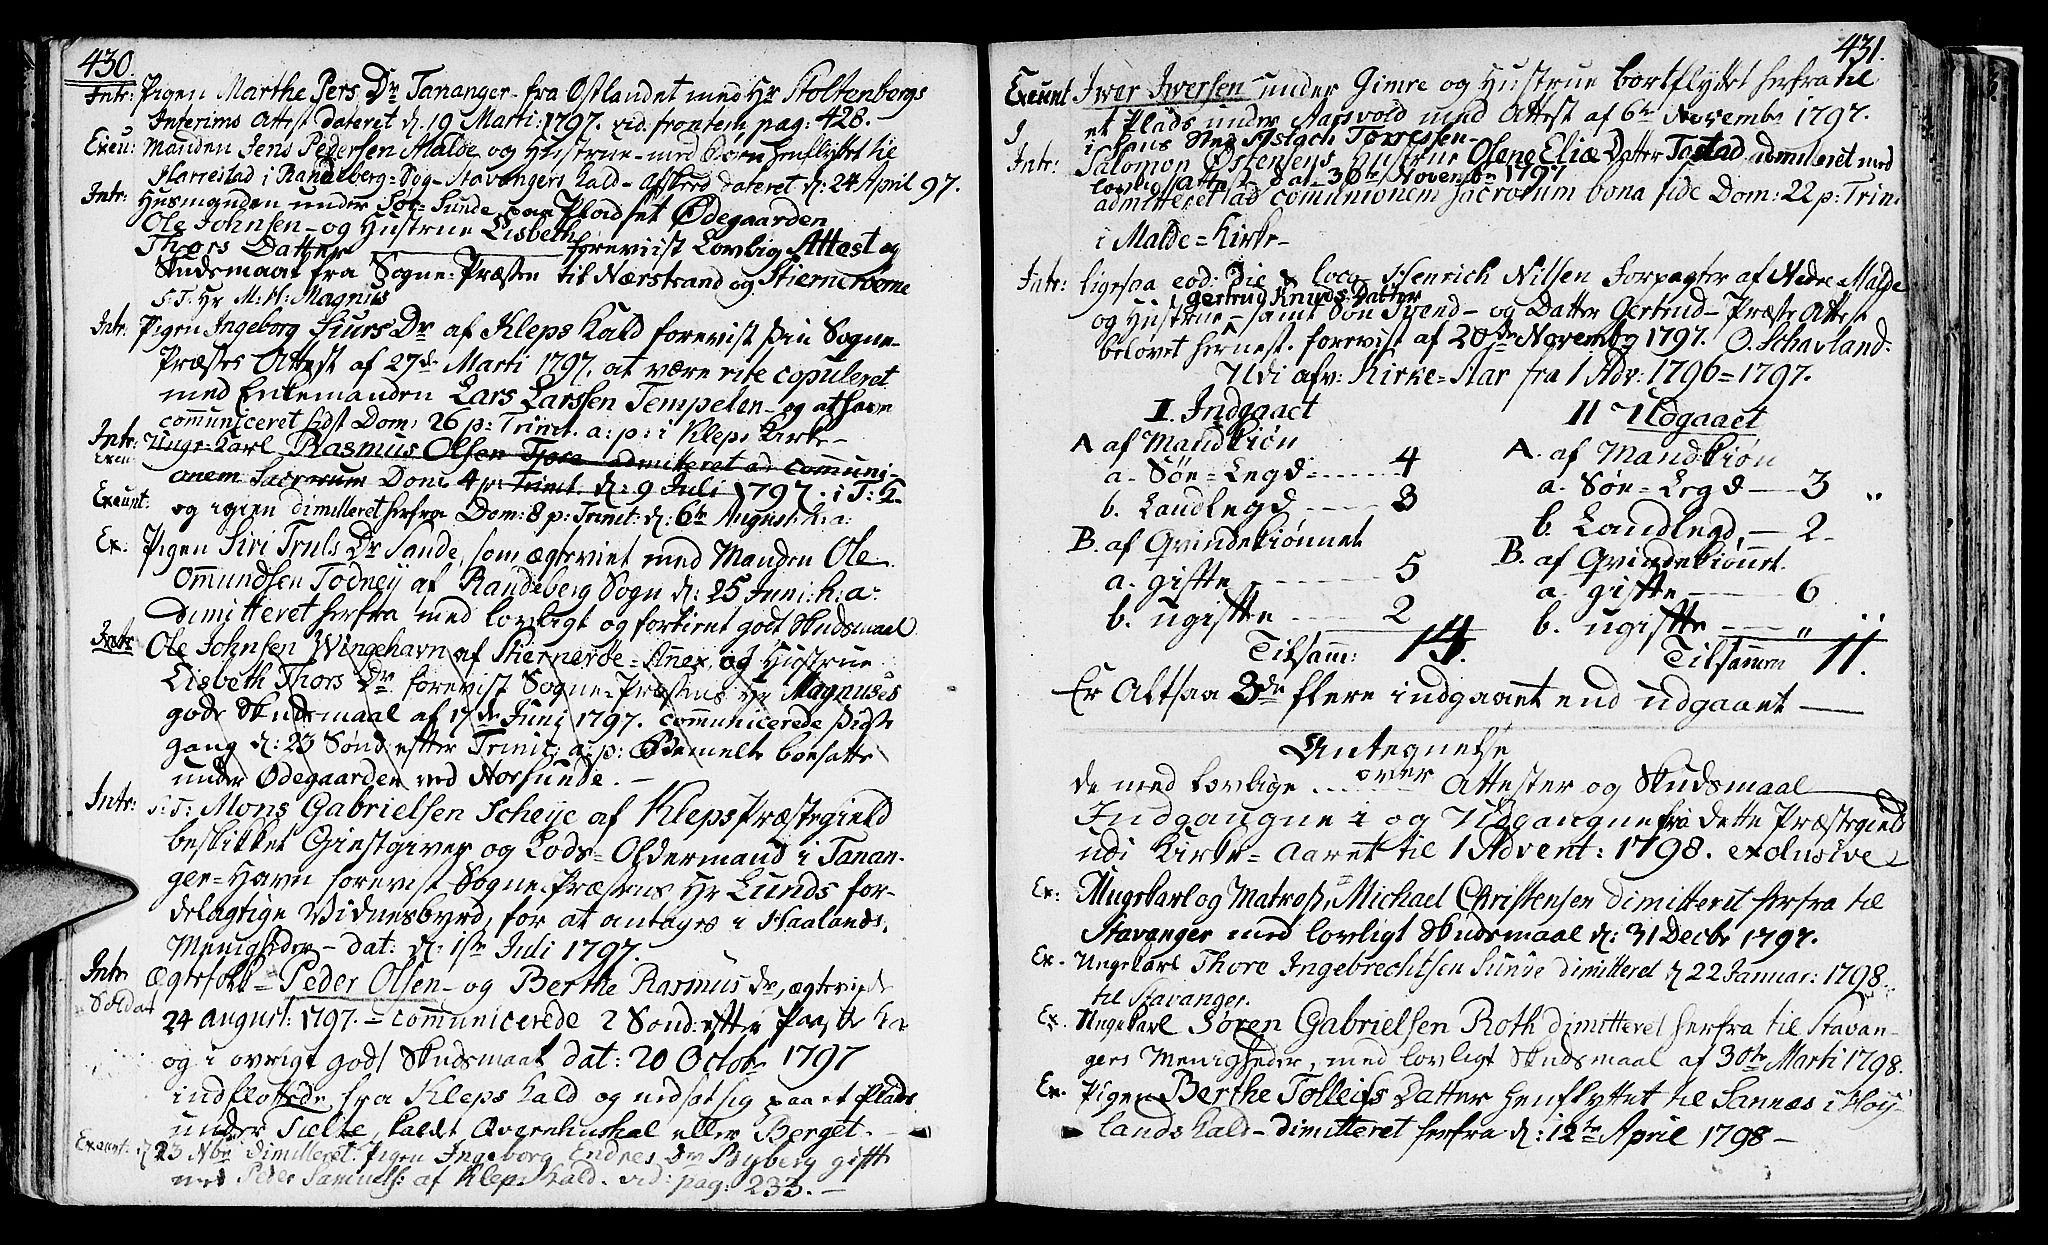 430.
Intr: Pigen Marthe Pers Dr Tananger fra Østlandet med Hr Stoltenbergs
Interims Attest dateret d. 19 Marti: 1797. vid. frontem pag: 428.
Exeu: Manden Jens Pedersen Malde og Hustrue med Børn henflyttet til
Harrestad i Randeberg=Sogn Stavangers Kald dateret d: 24 April 97.
Intr: Husmanden under Sør=Sunde paa Pladset Ødegaarden
Ole Johnsen og Hustrue Lisbeth
Thors Datter foreviist Lovlig Attest og
Skudsmaal fra Sogne=Præsten til Nærstrand og Stierneröerne
S:T: Hr M: H: Magnus
Intr: Pigen Ingeborg Siurs Dr af Kleps Kald forevist sin Sogne-
Præstes Attest af 27de Marti 1797. at være rite copuleret
med Enkemanden Lars Larssen Tempelen og at have
communiceret sidst Dom: 26 p: Trinit. a: p: i Kleps Kirke
Intr: Unge=Karl Rasmus Olsen Tjora admitteret ad communi-
onem Sacrorum Dom: 4 p: Trinit. d: 9 Juli 1797. i T: K.
Exeunt: og igien dimitteret herfra Dom: 8 p: Trinit: d: 6te August: h: a:
Ex: Pigen Siri Truls Dr Sande, som ægteviet med Manden Ole
Ommundsen Todneÿ af Randeberg Sogn d: 25 Juni: h: a:
dimitteret herfra med lovligt og fortient godt Skudsmaal
Intr: Ole Johnsen Wingehavn af Stierneröe=Anex, og Hustrue
Lisbeth Thors Dr forevist Sogne=Præstens Hr Magnuses
gode Skudsmaal af 17de Juni 1797. communicerede sidste
gang d: 23 Sønd: efter Trinit: a: p: Bemelte bosatte
under Ødegaarden ved Norsunde.
Intr: S: T: Mons Gabrielsen Scheÿe af Kleps Præstegield
beskikket Giestgiver og Lods=Oldermand i Tanan-
ger=Havn forevist Sogne Præstens Hr Lunds for-
delagtige Vidnesbyrd, for at antages i Haalands
Menigheder dat: d: 1ste Juli 1797.
Intr: Ægtefolk Peder Olsen og Berthe Rasmus Dr, ægteviede
Soldat 24 August: 1797. communicerede 2 Sønd: efter Paaske
og i øvrigt godt Skudsmaal dat: 20 Octobr 1797
indflottede fra Kleps Kald og nedsat sig paa et Plads
under Sielte, kaldt Averehushal eller Berget
Exeunt: d 23 Nbr dimitteret Pigen Ingeborg Endres Dr Byberg gift
med Peder Samuels: af Kleps Kald. vid: pag: 233.
431.
Exeunt Iwer Iwersen under Gimre og Hustrue bortflyttet herfra til
et Plads under Aarsvold med Attest af 6te Novembr 1797.
I hans Sted Aslach Torresen
Intr: Salomon Østensens Hustrue Olene Eliæ Datter Tastad dimitteret med
lovlig Attest dat 30te Novembr 1797
admitteret ad communionem sacrorum bona fide Dom: 22 p: Trin:
i Malde=Kirke
Intr: ligesaa eod: die & loco Henrich Nilsen Forpagter af Nedre Malde
Gertrud Knuds Datter
og Hustrue samt Søn Svend og Datter Gertrud Præste Attest
belovet hernest. forevist af 20de Novembr 1797. O. Schavland:
Udi afv: Kirke=Aar fra 1 Adv: 1796=1797.
I. Indgaaet
A af Mandkiøn
a. Søe=Legd 4
b. Landlegd 3
B. af Qvindekiønnet
a. giftte 5
b. ugiftte 2
Tilsamm: 14.
II Udgaaet
A. af Mandkiøn
a. Søe=Legd 3
b. Landlegd, 2
B. af Qvindekiønnet.
a. giftte 6
b. ugiftte "
Tilsammen 11.
Er Altsaa 3de flere indgaaet end udgaaet
Antegnelse
over
de med lovlige Attester og Skudsmaal
Indgangne i og Udgangne fra dette Præstegield
udi Kirke=Aaret til 1 Advent: 1798. exclusive
Ex: Ungekarl og Matros, Michael Christensen dimitteret herfra til
Stavanger med lovligt Skudsmaal d: 31 Decbr 1797.
Ex. Ungekarl Thore Ingebrechtsen Sunde dimitteret d 22 Januar: 1798
til Stavanger.
Ex. Ungekarl Søren Gabrielsen Roth dimitteret herfra til Stavan-
gers Menigheder, med lovligt Skudsmaal af 30te Marti 1798.
Ex. Pigen Berthe Tolleifs Datter henflyttet til Sannæs i Høÿ-
lands Kald dimitteret herfra d: 12te April 1798